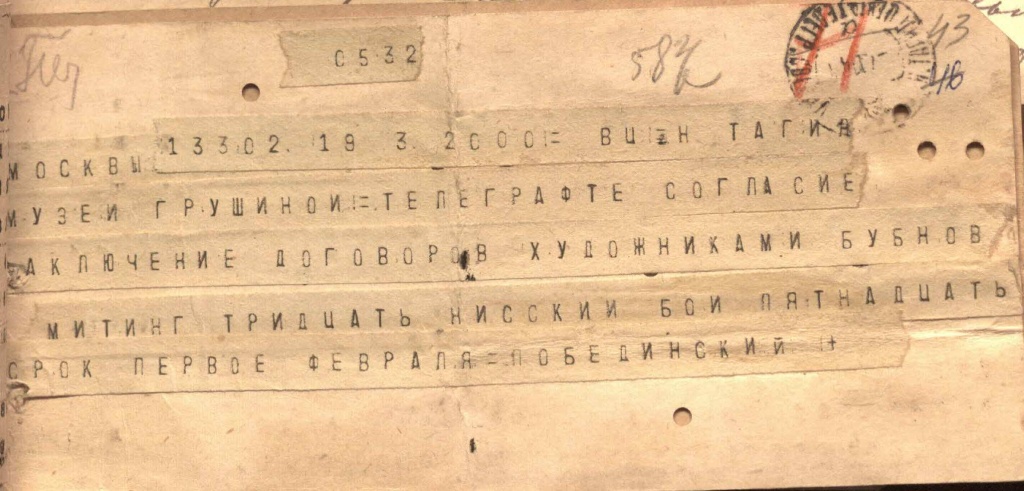 0532
587
43
46
МОСКВЫ 13302. 19 3. 2000= ВЦН ТАГИЛ
МУЗЕЙ ГРУШИНОЙ=ТЕЛЕГРАФТЕ СОГЛАСИЕ
АКЛЮЧЕНИЕ ДОГОВОРОВ ХУДОЖНИКАМИ БУБНОВ
МИТИНГ ТРИДЦАТЬ НИССКИЙ БОИ ПЯТНАДЦАТЬ
СРОК ПЕРВОЕ ФЕВРАЛЯ=ПОБЕДИНСКИЙ +